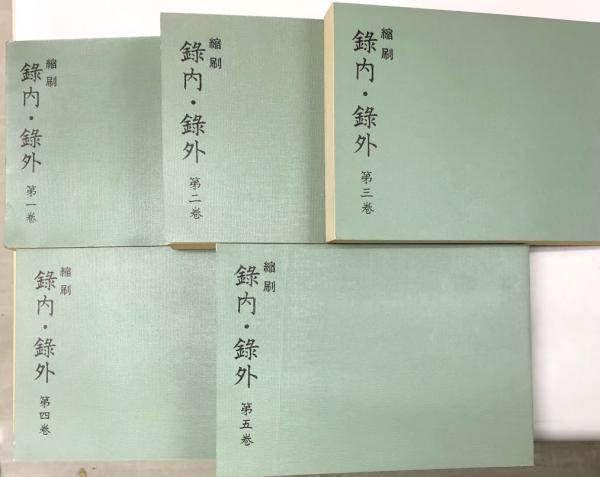 縮刷
錄内・錄外 第一巻
縮刷
錄内・錄外 第二巻
縮刷
錄内・錄外 第三巻
縮刷
錄内・錄外 第四巻
縮刷
錄内・錄外 第五巻